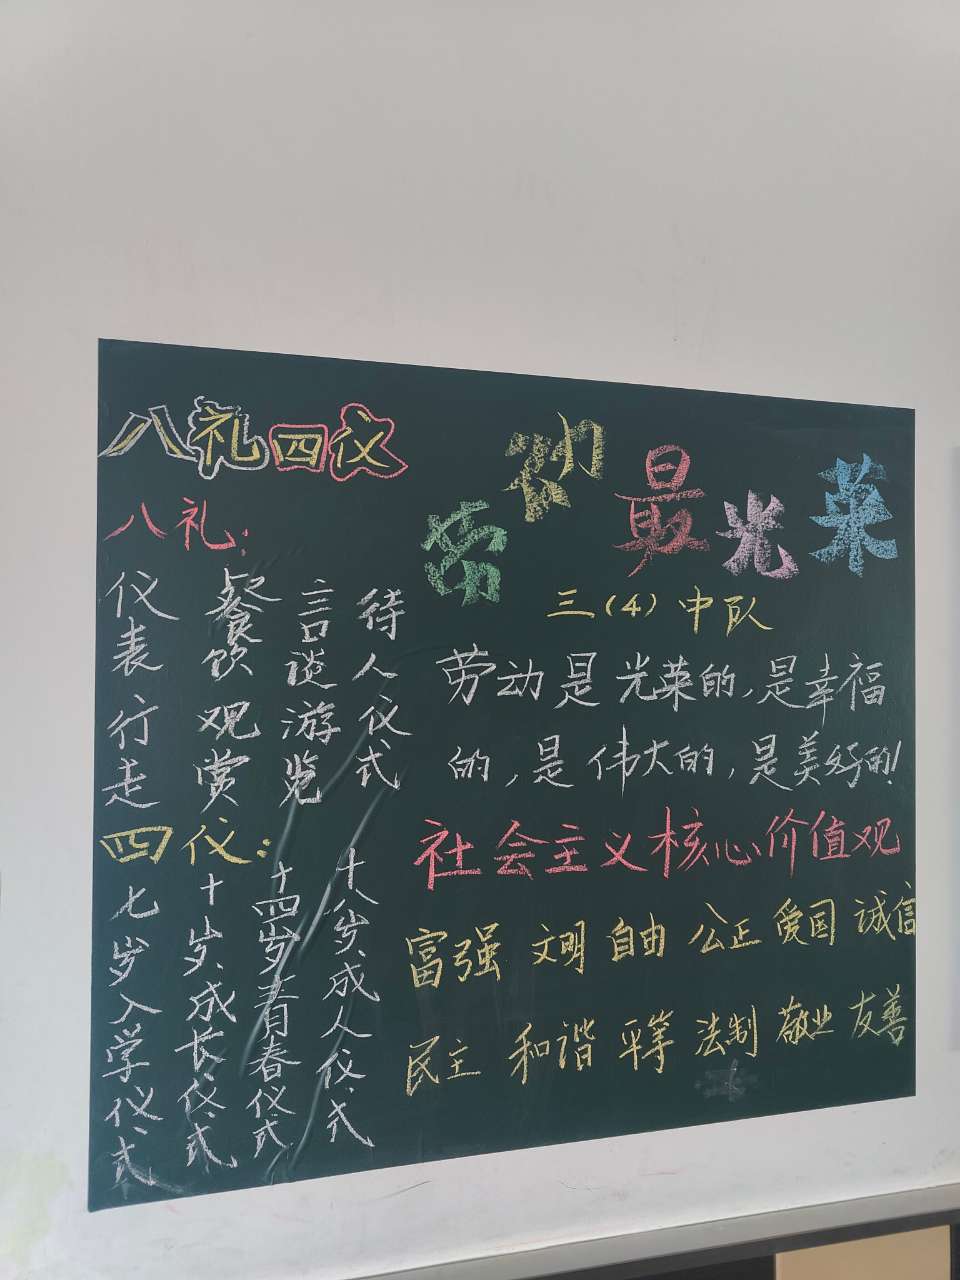 八礼四仪
八礼：
仪表行走
餐饮观赏
言谈游览
待人仪式
四仪：
七岁入学仪式
十岁成长仪式
十四岁青春仪式
十八岁成人仪式
劳动最光荣
三(4)中队
劳动是光荣的，是幸福
的，是伟大的，是美好的！
社会主义核心价值观
富强 文明 自由 公正 爱国 诚信
民主 和谐 平等 法制 敬业 友善